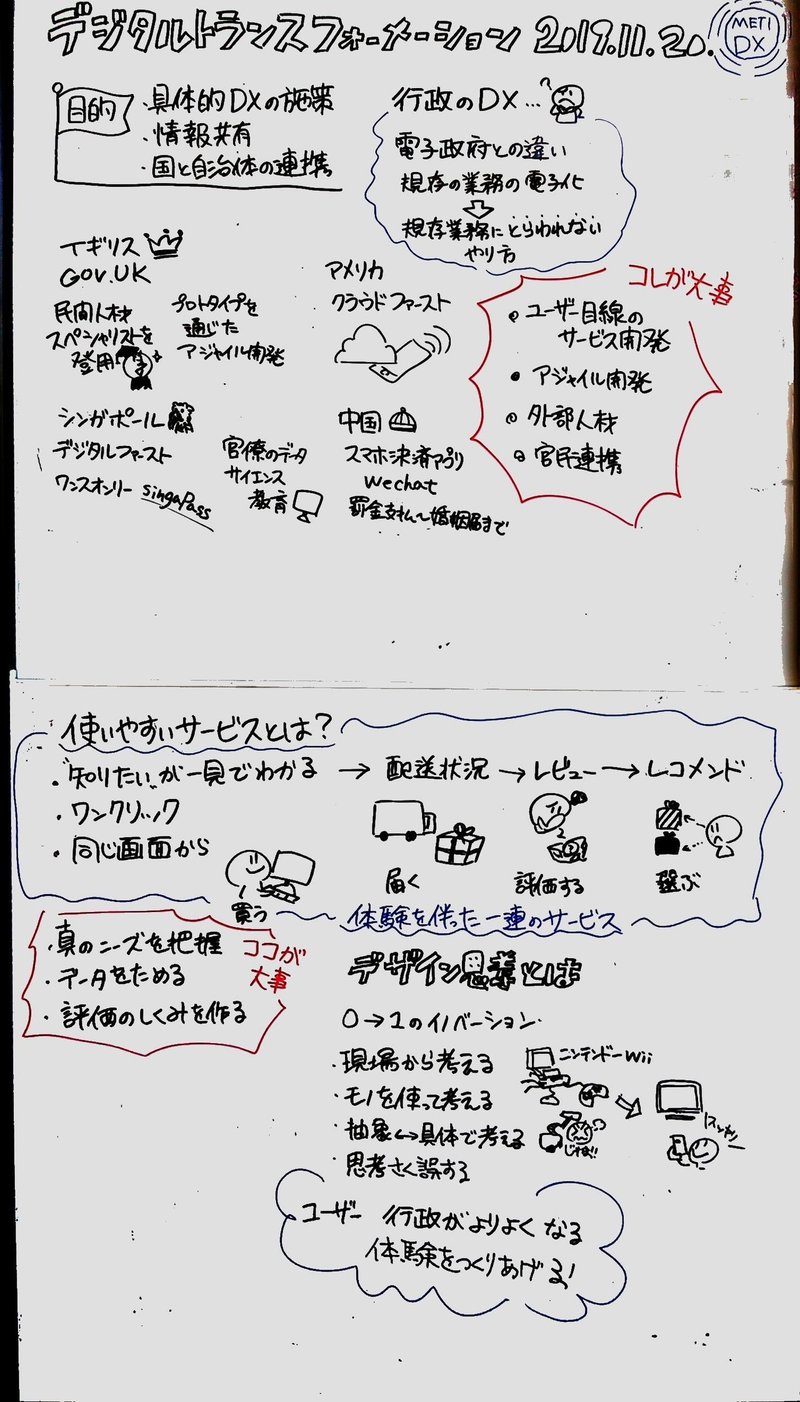 デジタルトランスフォーメーション 2019.11.20.
METI
DX
目的
・具体的DXの施策
・情報共有
・国と自治体の連携
行政のDX…?
電子政府との違い
規存の業務の電子化
規存業務にとらわれない
やり方
イギリス
GOV.UK
民間人材
スペシャリストを
登用
プロトタイプを
通じた
アジャイル開発
アメリカ
クラウドファースト
コレが大事
・ユーザー目線の
サービス開発
・アジャイル開発
・外部人材
・官民連携
シンガポール
デジタルファースト
ワンスオンリー singaPass
官僚のデータ
サイエンス
教育
中国
スマホ決済アプリ
wechat
罰金支払〜婚姻届まで
使いやすいサービスとは?
・"知りたい"が一見でわかる → 配送状況 → レビュー → レコメンド
・ワンクリック
・同じ画面から
買う
届く
評価する
選ぶ
体験を伴った一連のサービス
・真のニーズを把握
・データをためる
・評価のしくみを作る
ココが
大事
デザイン思考とは
0→1のイノベーション
・現場から考える
・モノを使って考える
・抽象↔具体で考える
・思考さく誤する
ニンテンドーwii
じゃま!!
スッキリ
ユーザー 行政がよりよくなる
体験をつくりあげる!